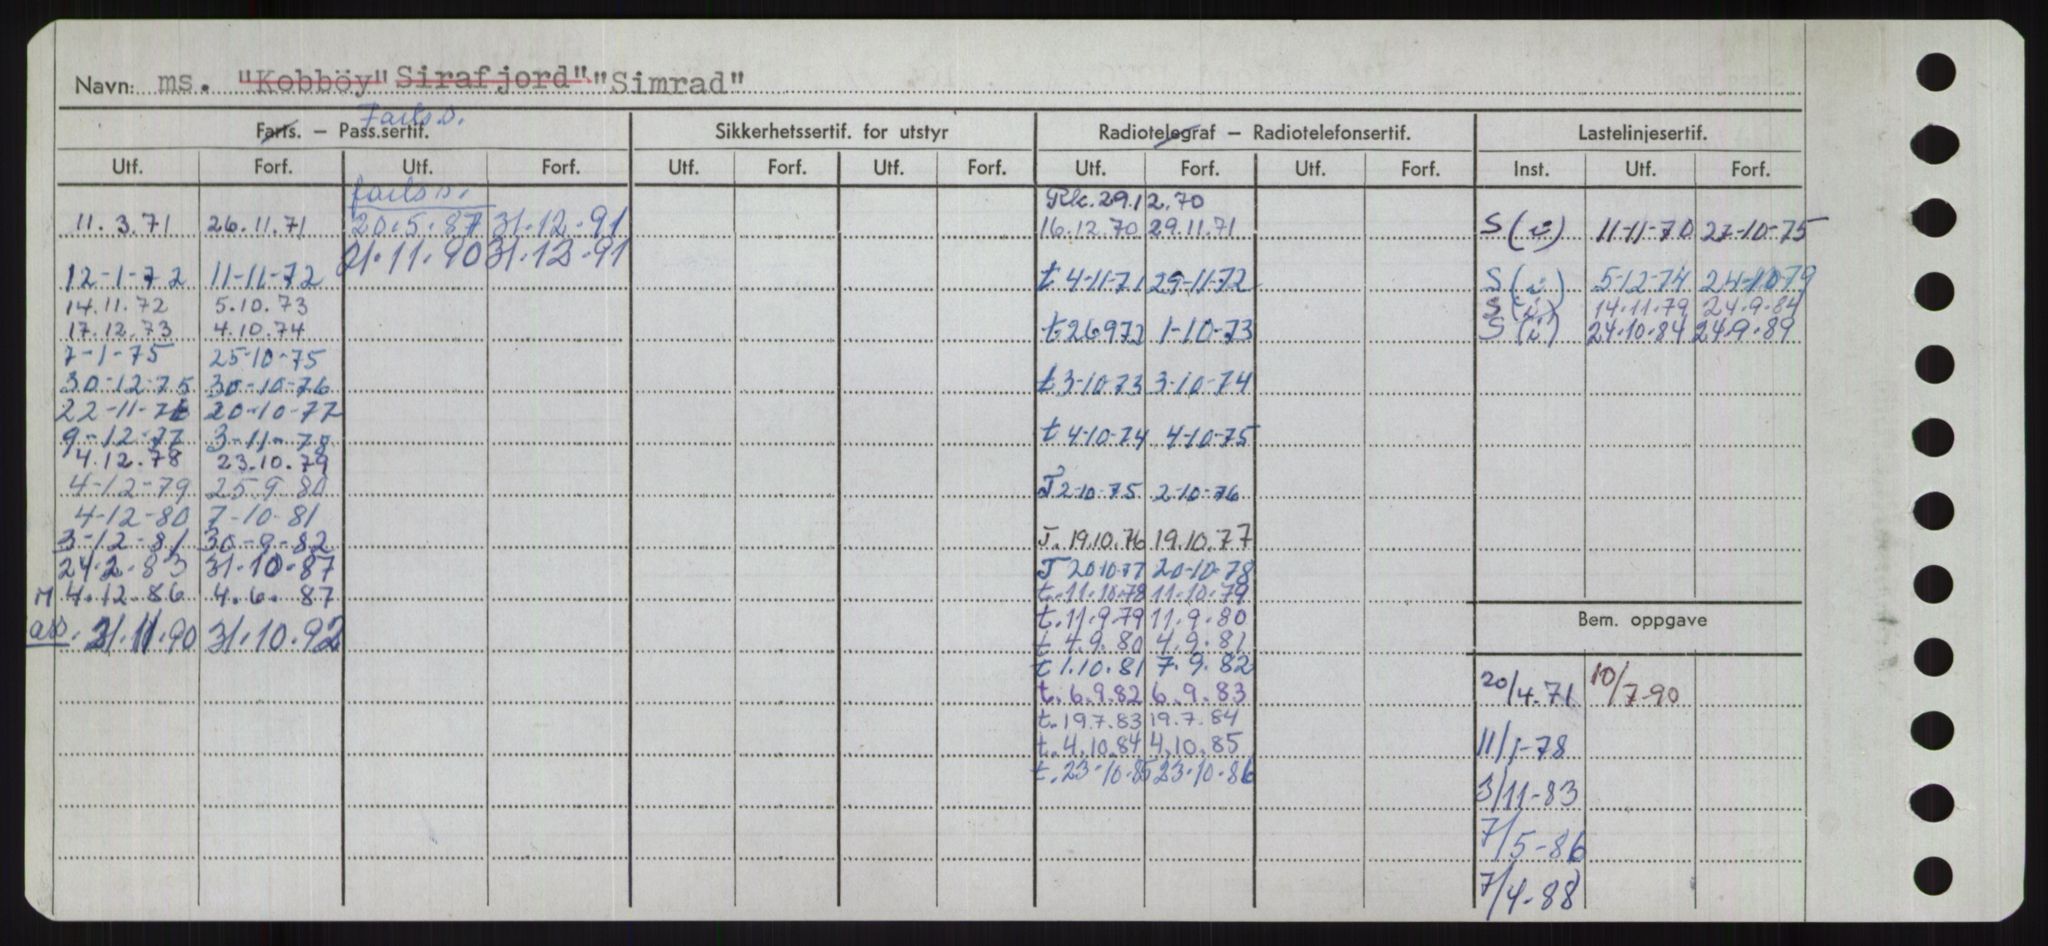 Navn: ms. "Kobböy" Sirafjord" "Simrad"
Farts.
Farts. – Pass.sertif. Sikkerhetssertif. for utstyr Radiotelegraf – Radiotelefonsertif. Lastelinjesertif.
Utf. Forf. Utf. Forf. Utf. Forf. Utf. Forf. Utf. Forf. Utf. Forf. Inst. Utf. Forf.
farts s. Rk. 29.12.70
11.3.71 26.11.71 20.5.87 31.12.91 16.12.70 29.11.71 S (i) 11-11-70 27-10-75
21.11.90 31.12.91
12-1-72 11-11-72 t 4-11-71 29-11-72 S (i) 5-12-74 24-10-79
14.11.72 5.10.73 S (i) 14.11.79 24.9.84
17.12.73 4.10.74 t 26972 1-10-73 S (i) 24.10.84 24.9.89
7-1-75 25-10-75
30-12-75 30-10-76 t 3-10-73 3-10-74
22-11-76 20-10-77
9-12-77 3-11-78 t 4-10-74 4-10-75
4.12.78 23.10.79
4-12-79 25.9.80 T 2-10-75 2-10-76
4-12-80 7-10-81
3-12-81 30-9-82 T. 19.10.76 19.10.77
24.2.83 31.10.87 T 20.10.77 20-10-78
M 4.12.86 4.6.87 t. 11.10.78 11.10.79
t. 11.9.79 11.9.80 Bem. oppgave
31.11.90 31.10.92 t 4.9.80 4.9.81
t 1.10.81 7.9.82
t. 6.9.82 6.9.83 20/4.71 10/7-90
t. 19.7.83 19.7.84
t. 4.10.84 4.10.85 11/1-78
t. 23-10-85 23-10-86
3/11-83
7/5-86
7/4-88